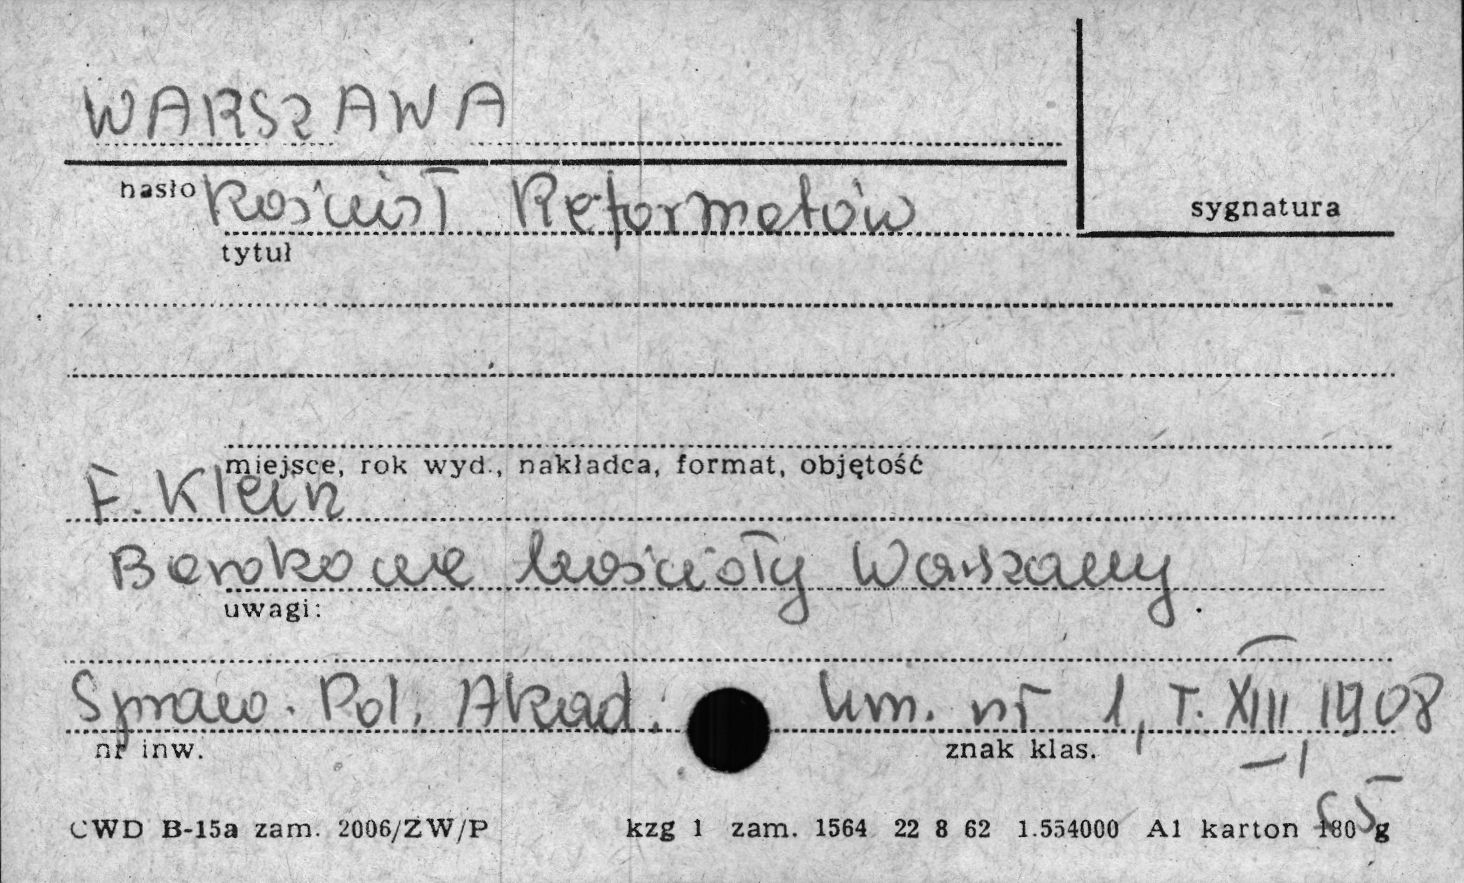 WARSZAWA
hasło Kościół Reformatów
sygnatura
tytuł
miejsce, rok wyd., nakładca, format, objętość
F. Klein
Barokowe kościoły Warszawy.
uwagi:
Spraw. Pol. Akad. Um. nr 1, T. XIII 1908
nr inw.
znak klas.
s 5
CWD B-15a zam. 2006/ZW/P kzg 1 zam. 1564 22 8 62 1.554000 A1 karton 180 g